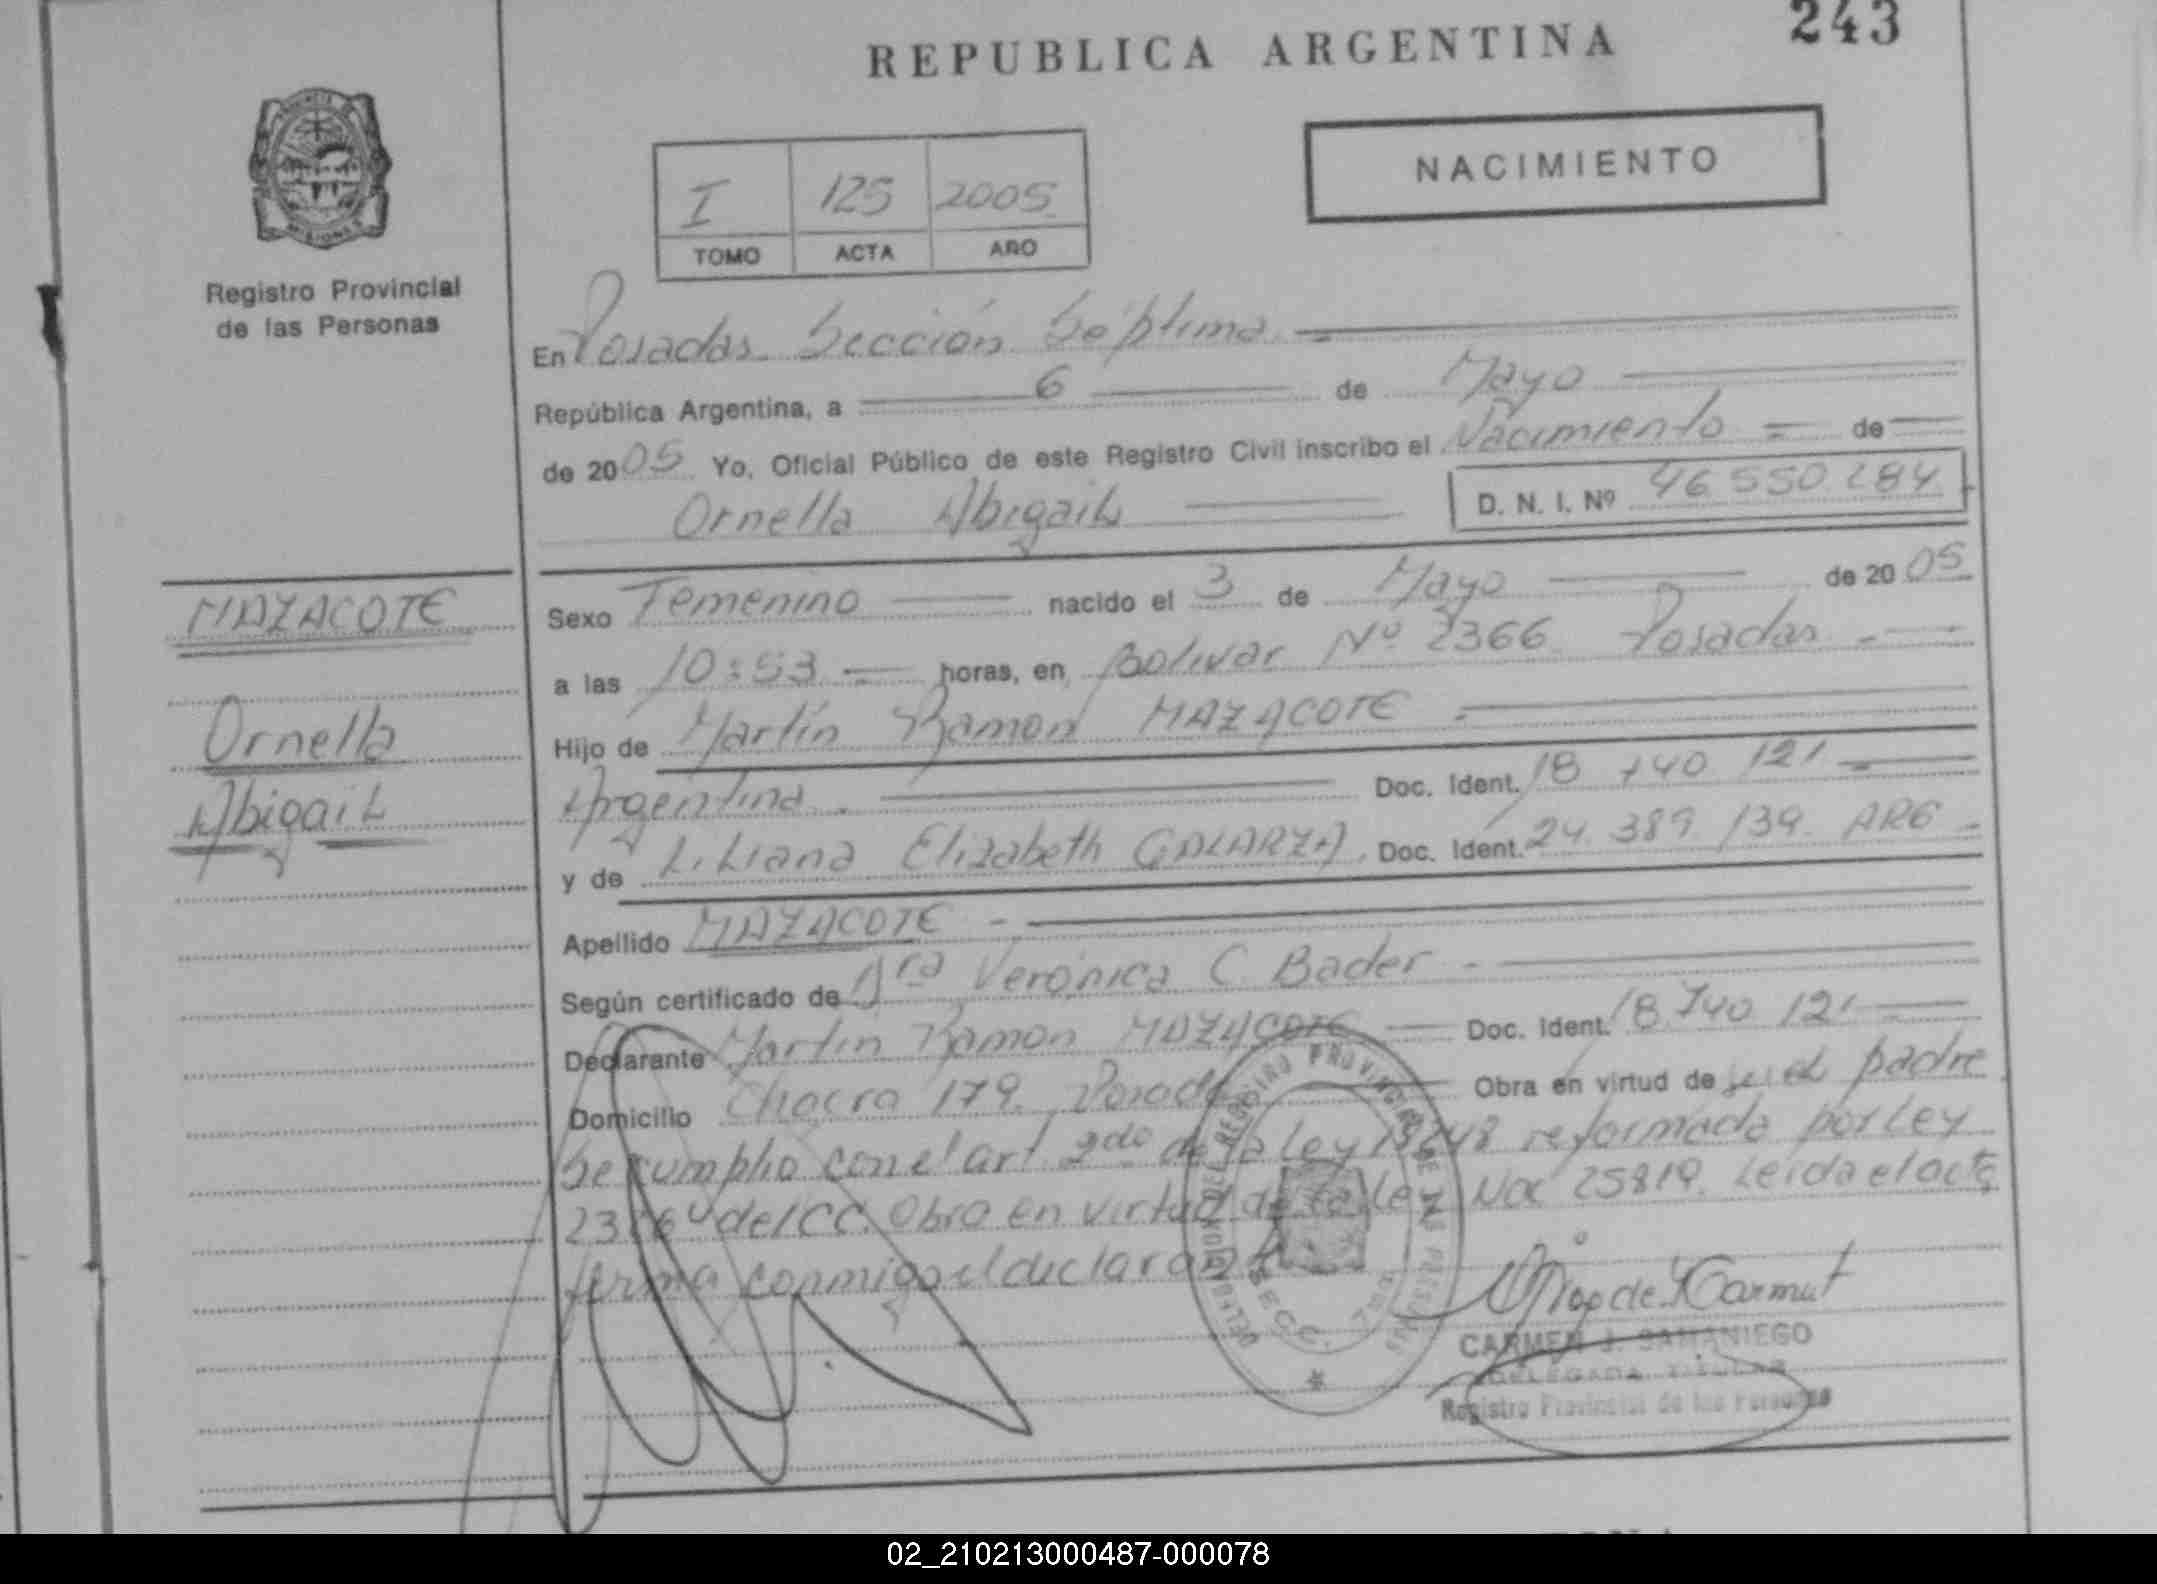 243
REPUBLICA ARGENTINA
NACIMIENTO
I 125 2005
TOMO ACTA AÑO
PROVINCIA DE
MISIONES
Registro Provincial
de las Personas
En Posadas Sección Séptima
República Argentina, a 6 de Mayo
de 2005 Yo, Oficial Público de este Registro Civil inscribo el Nacimiento de
Ornella Abigail D. N. I. Nº 46 550 284
MAZACOTE
Ornella
Abigail
Sexo Femenino nacido el 3 de Mayo de 2005
a las 10:53 horas, en Bolivar Nº 2366 Posadas
Hijo de Martín Ramon MAZACOTE
Argentina. Doc. Ident. 18 740 121
y de Liliana Elizabeth GALARZA, Doc. Ident. 24 389 139 ARG
Apellido MAZACOTE
Según certificado de Dra Verónica C Bader
Declarante Martin Ramon MAZACOTE Doc. Ident. 18.740 121
Domicilio Chacra 179. Posadas Obra en virtud de ser el padre
Se cumplio con el art 2do de la ley 13248 reformada por Ley
del CC. Obro en virtud de la Ley Nac 25819. Leida el acta
firma conmigo el declarante
DELEGACION DEL REGISTRO PROVINCIAL DE LAS PERSONAS
SECC.
CARMEN J. SAMANIEGO
DELEGADA TITULAR
Registro Provincial de las Personas
02_210213000487-000078